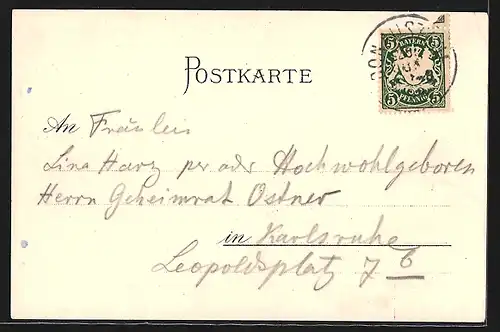 POSTKARTE
BAYERN
5 5
PFENNIG
An Fräulein
Lina Harz per adr Hochwohlgeboren
Herrn Geheimrat Ostner
in Karlsruhe
Leopoldsplatz 7 b